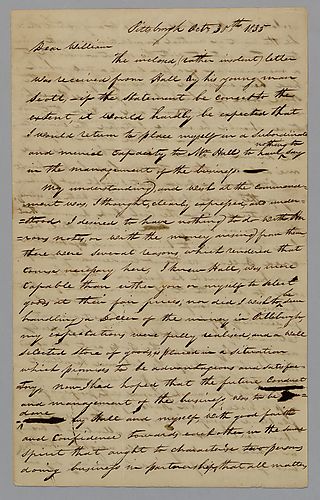 Pittsburgh Oct. 31th 1835
Dear William
The inclosed (rather insolent) letter
was received from Hall by his young man
Scott, if the statement be correct to the
extent, it would hardly be expected that
I would return to place myself in a subordinate
and menial capacity to Mr Hall, to have nothing to say
in the management of the business.
My understanding and wish at the commence-
ment was, I thought, clearly expressed and under-
=stood I desired to have nothing to do with the
notes, or with the money arising from them
there were several reasons which rendered that
course necessary here, I knew Hall was more
capable than either you or myself to select
goods at their fair prices, nor did I wish to be
handling a Dollar of the money in Pittsburgh
my expectations were fully realised and a well
selected store of goods is placed in a situation
which promises to be advantageous and satisfac-
tory. Now, I had hoped that the future Conduct
and management of the business was to be
done by Hall and myself with good faith
and Confidence towards each other in the same
spirit that ought to characterise two persons
doing business in partnership, that all matters